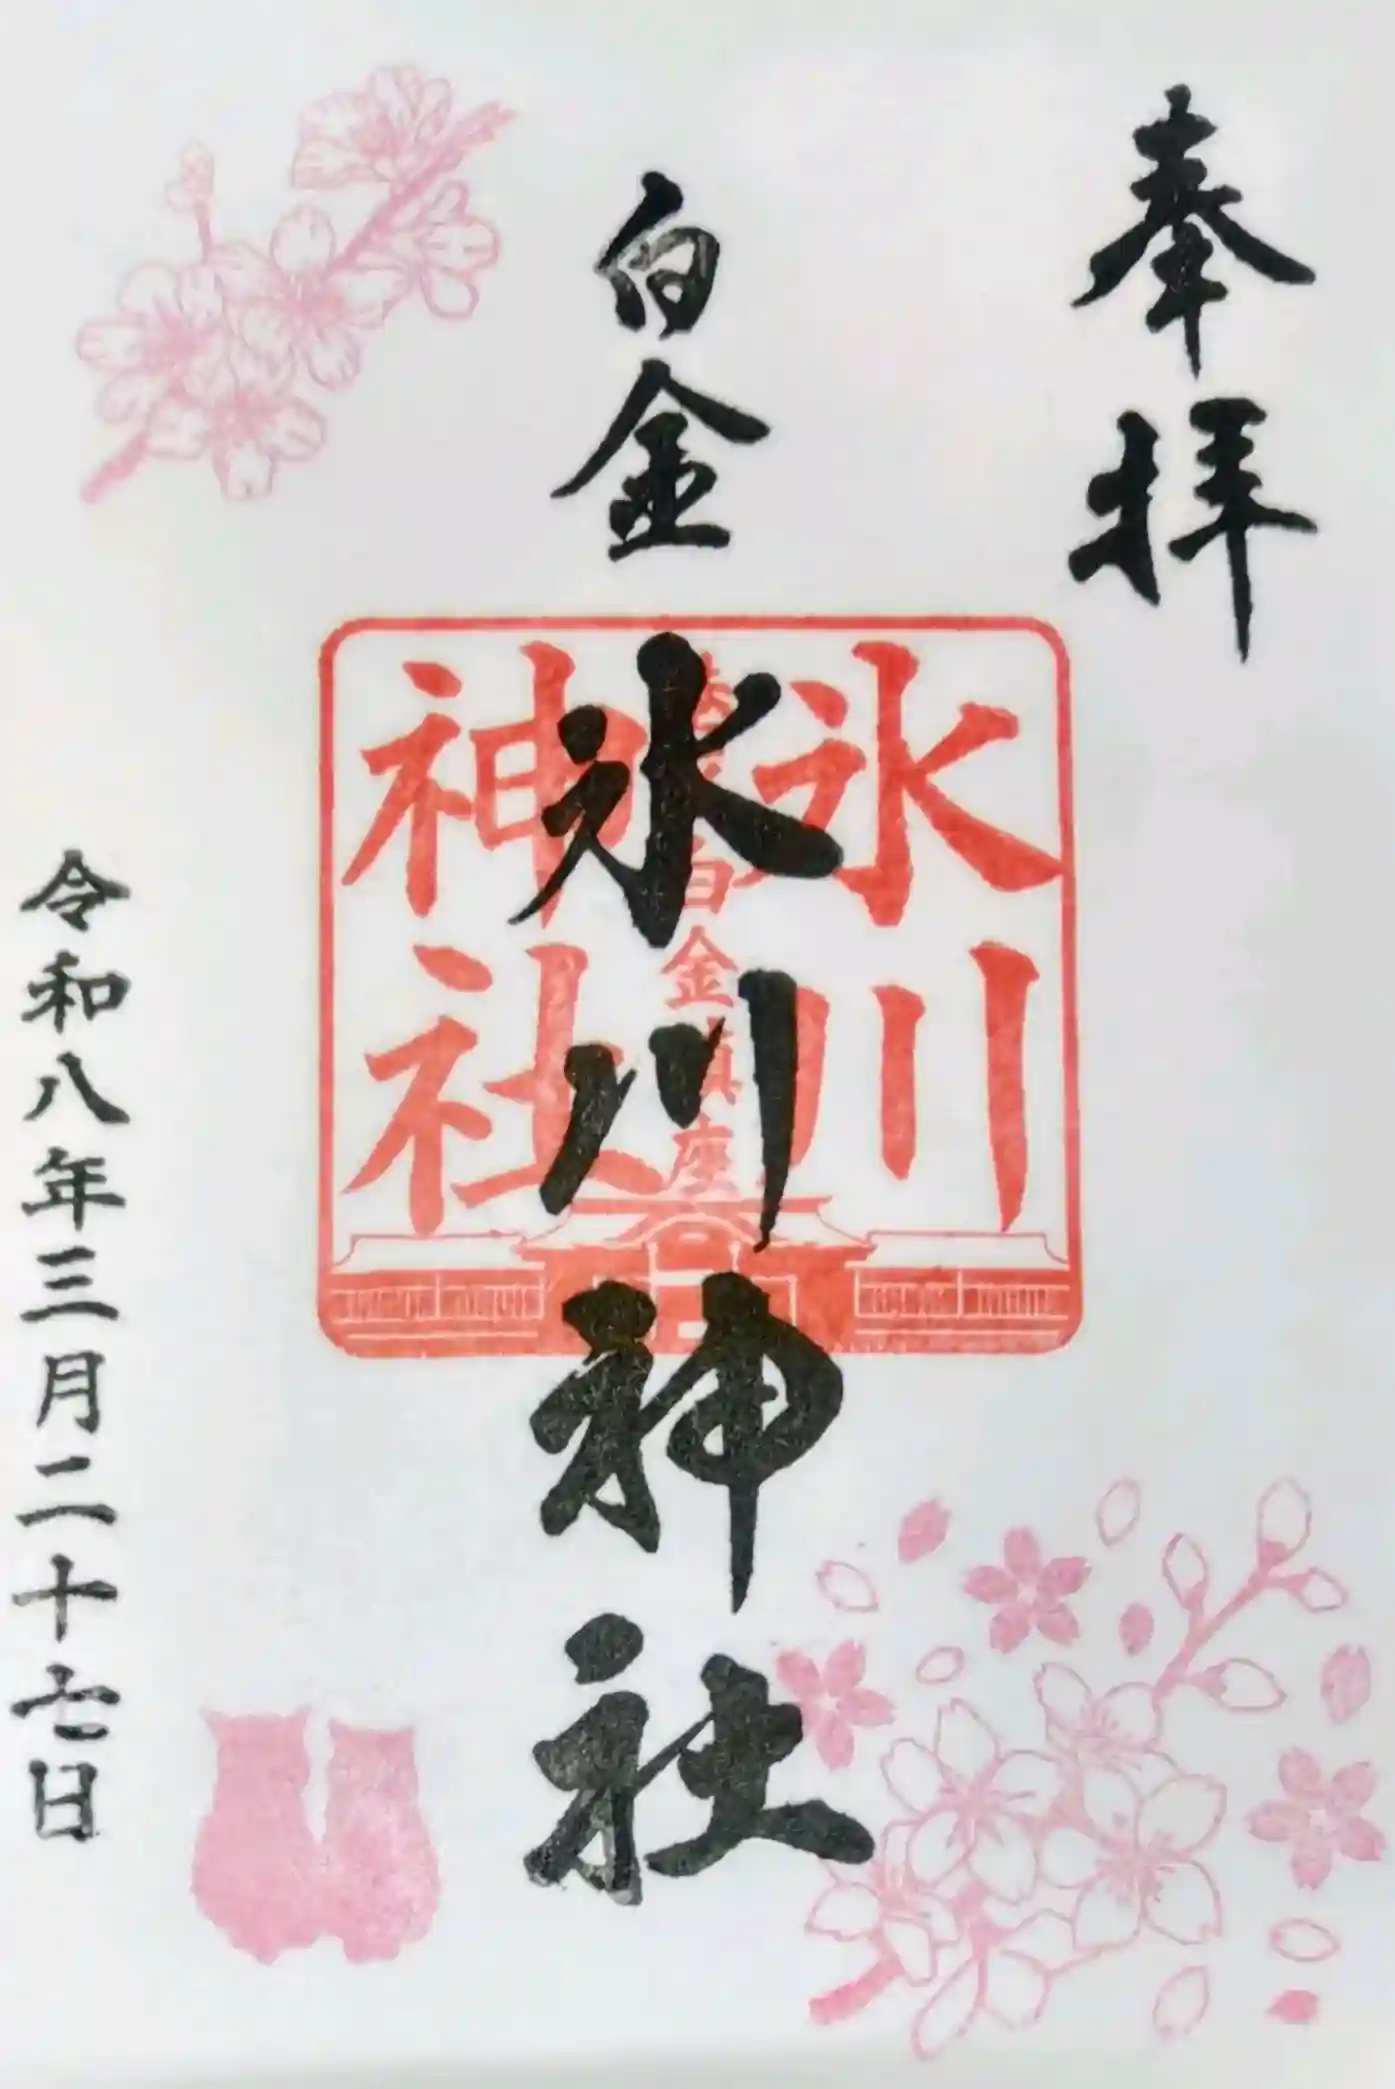 奉拝
白金
氷川神社
氷川
白金鎮座
神社
令和八年三月二十七日